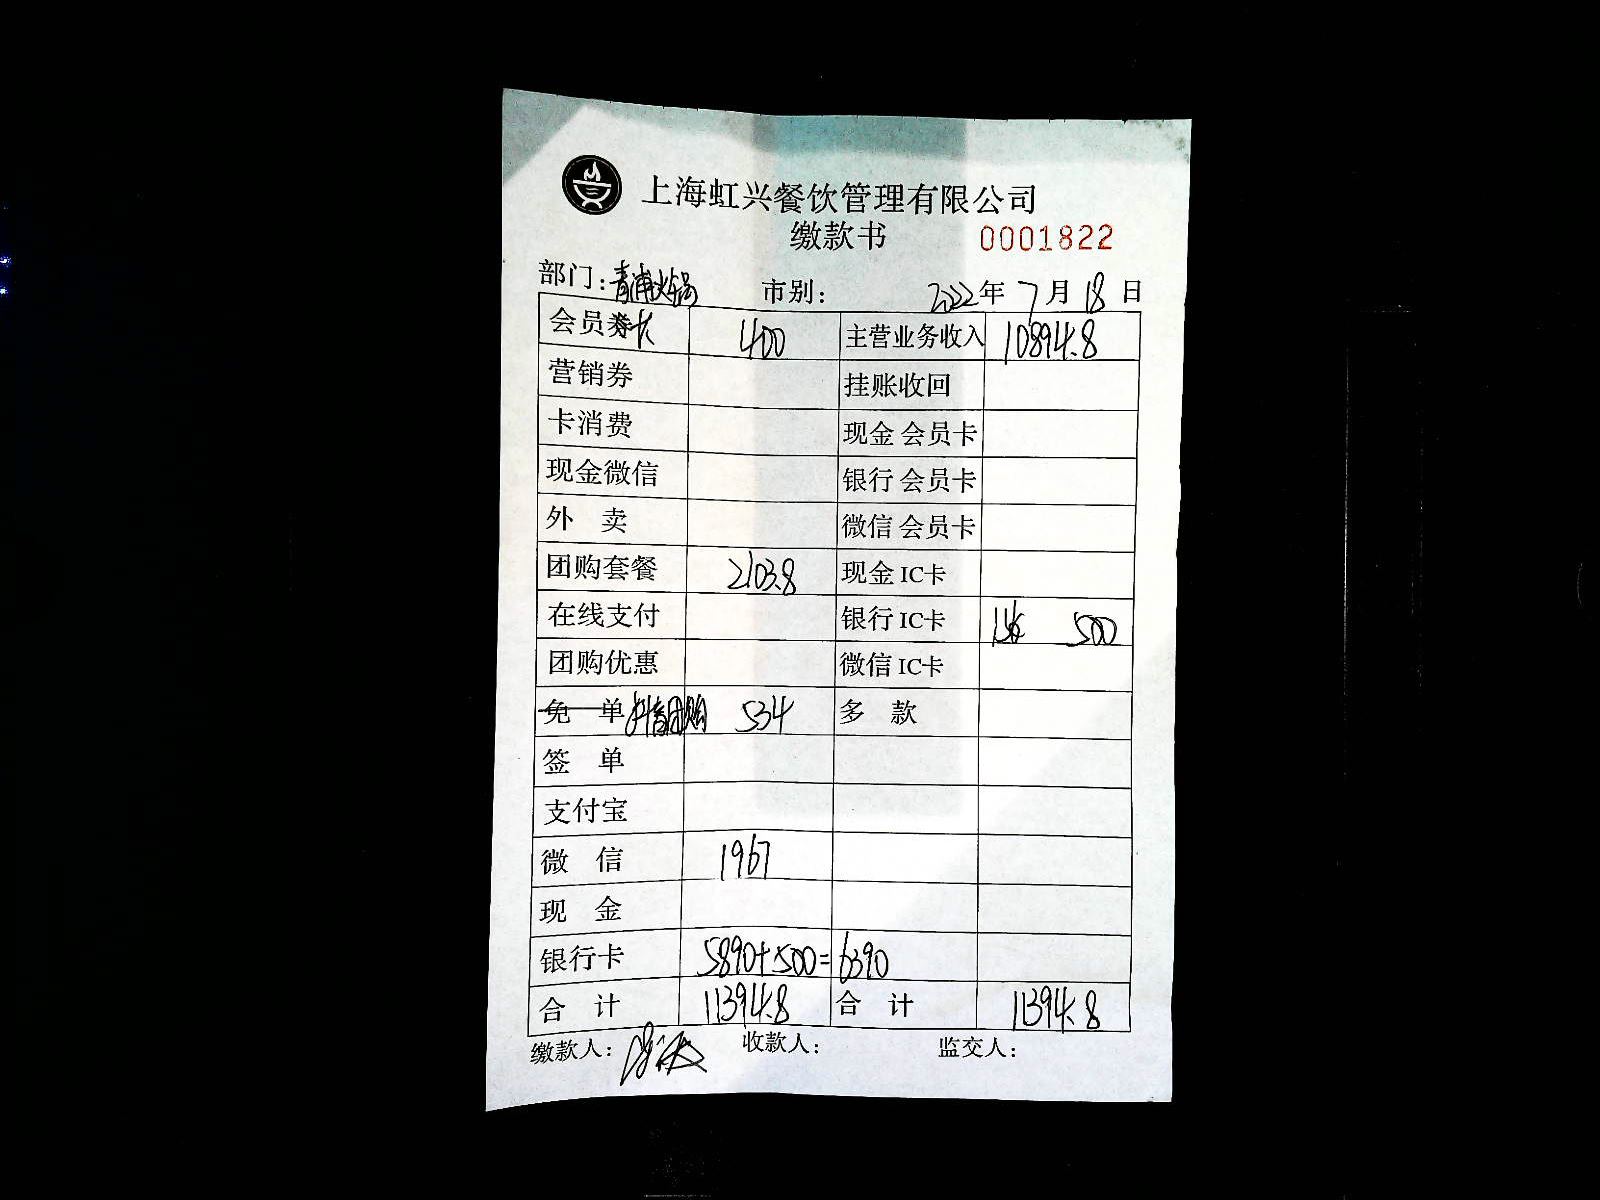 上海虹兴餐饮管理有限公司
缴款书 0001822
部门：青浦火锅 市别： 2022年 7月 18日
会员卡 400 主营业务收入 10894.8
营销券 挂账收回
卡消费 现金 会员卡
现金微信 银行 会员卡
外 卖 微信 会员卡
团购套餐 2103.8 现金 IC卡
在线支付 银行 IC卡 500
团购优惠 微信 IC卡
免 单 抖音团购 534 多 款
签 单
支付宝
微 信 1967
现 金
银行卡 5890+500=6390
合 计 11394.8 合 计 11394.8
缴款人： 收款人： 监交人：